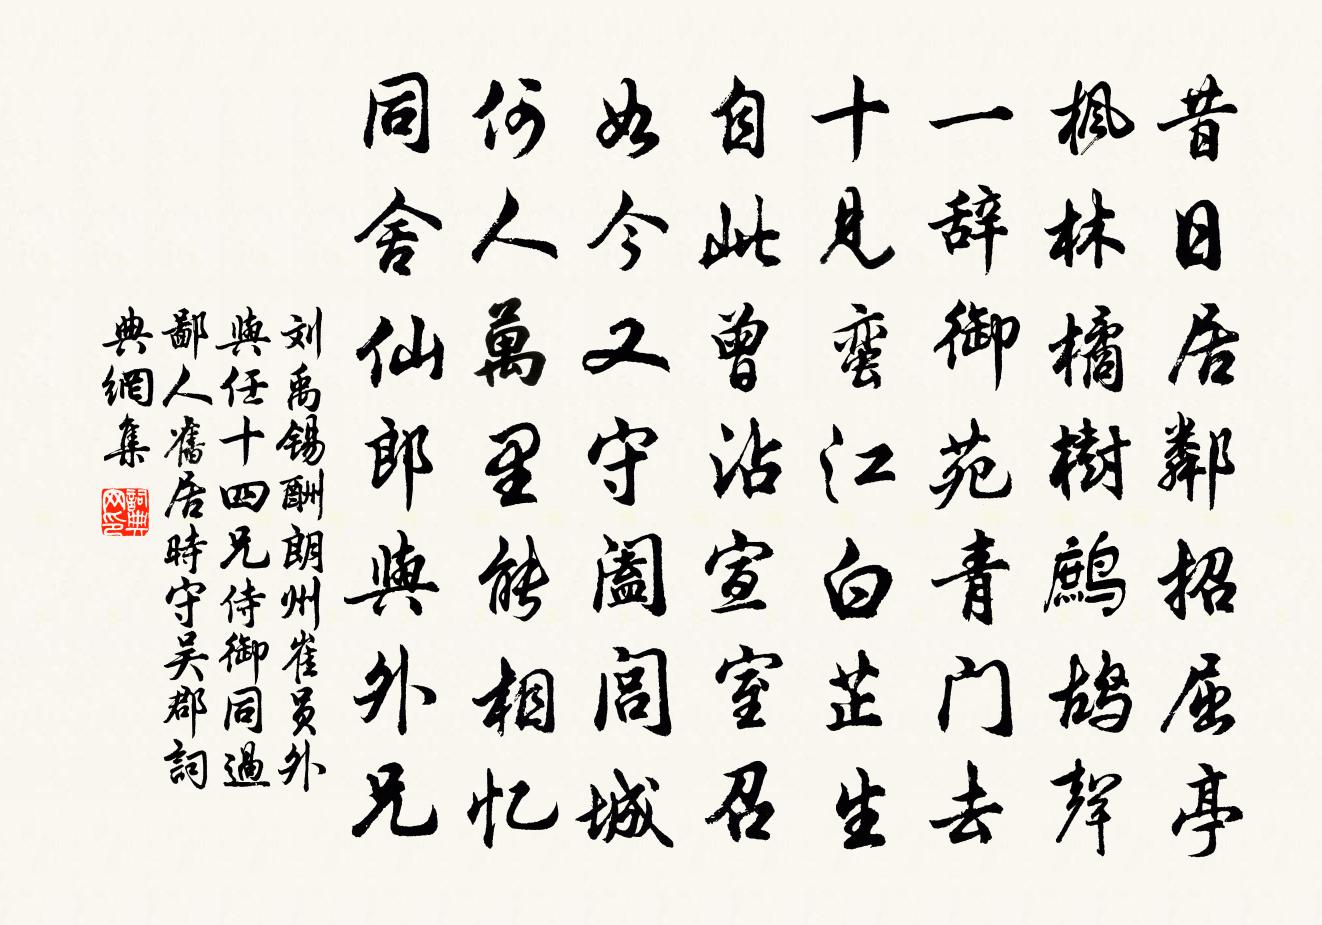 昔日居鄰招屈亭
枫林橘樹鷓鴣聲
一辞御苑青门去
十見蛮江白芷生
自此曾沾宣室召
如今又守阖闾城
何人萬里能相忆
同舍仙郎與外兄
刘禹锡酬朗州崔员外
與任十四兄侍御同過
鄙人舊居時守吴郡詞
典網集
詞典网印